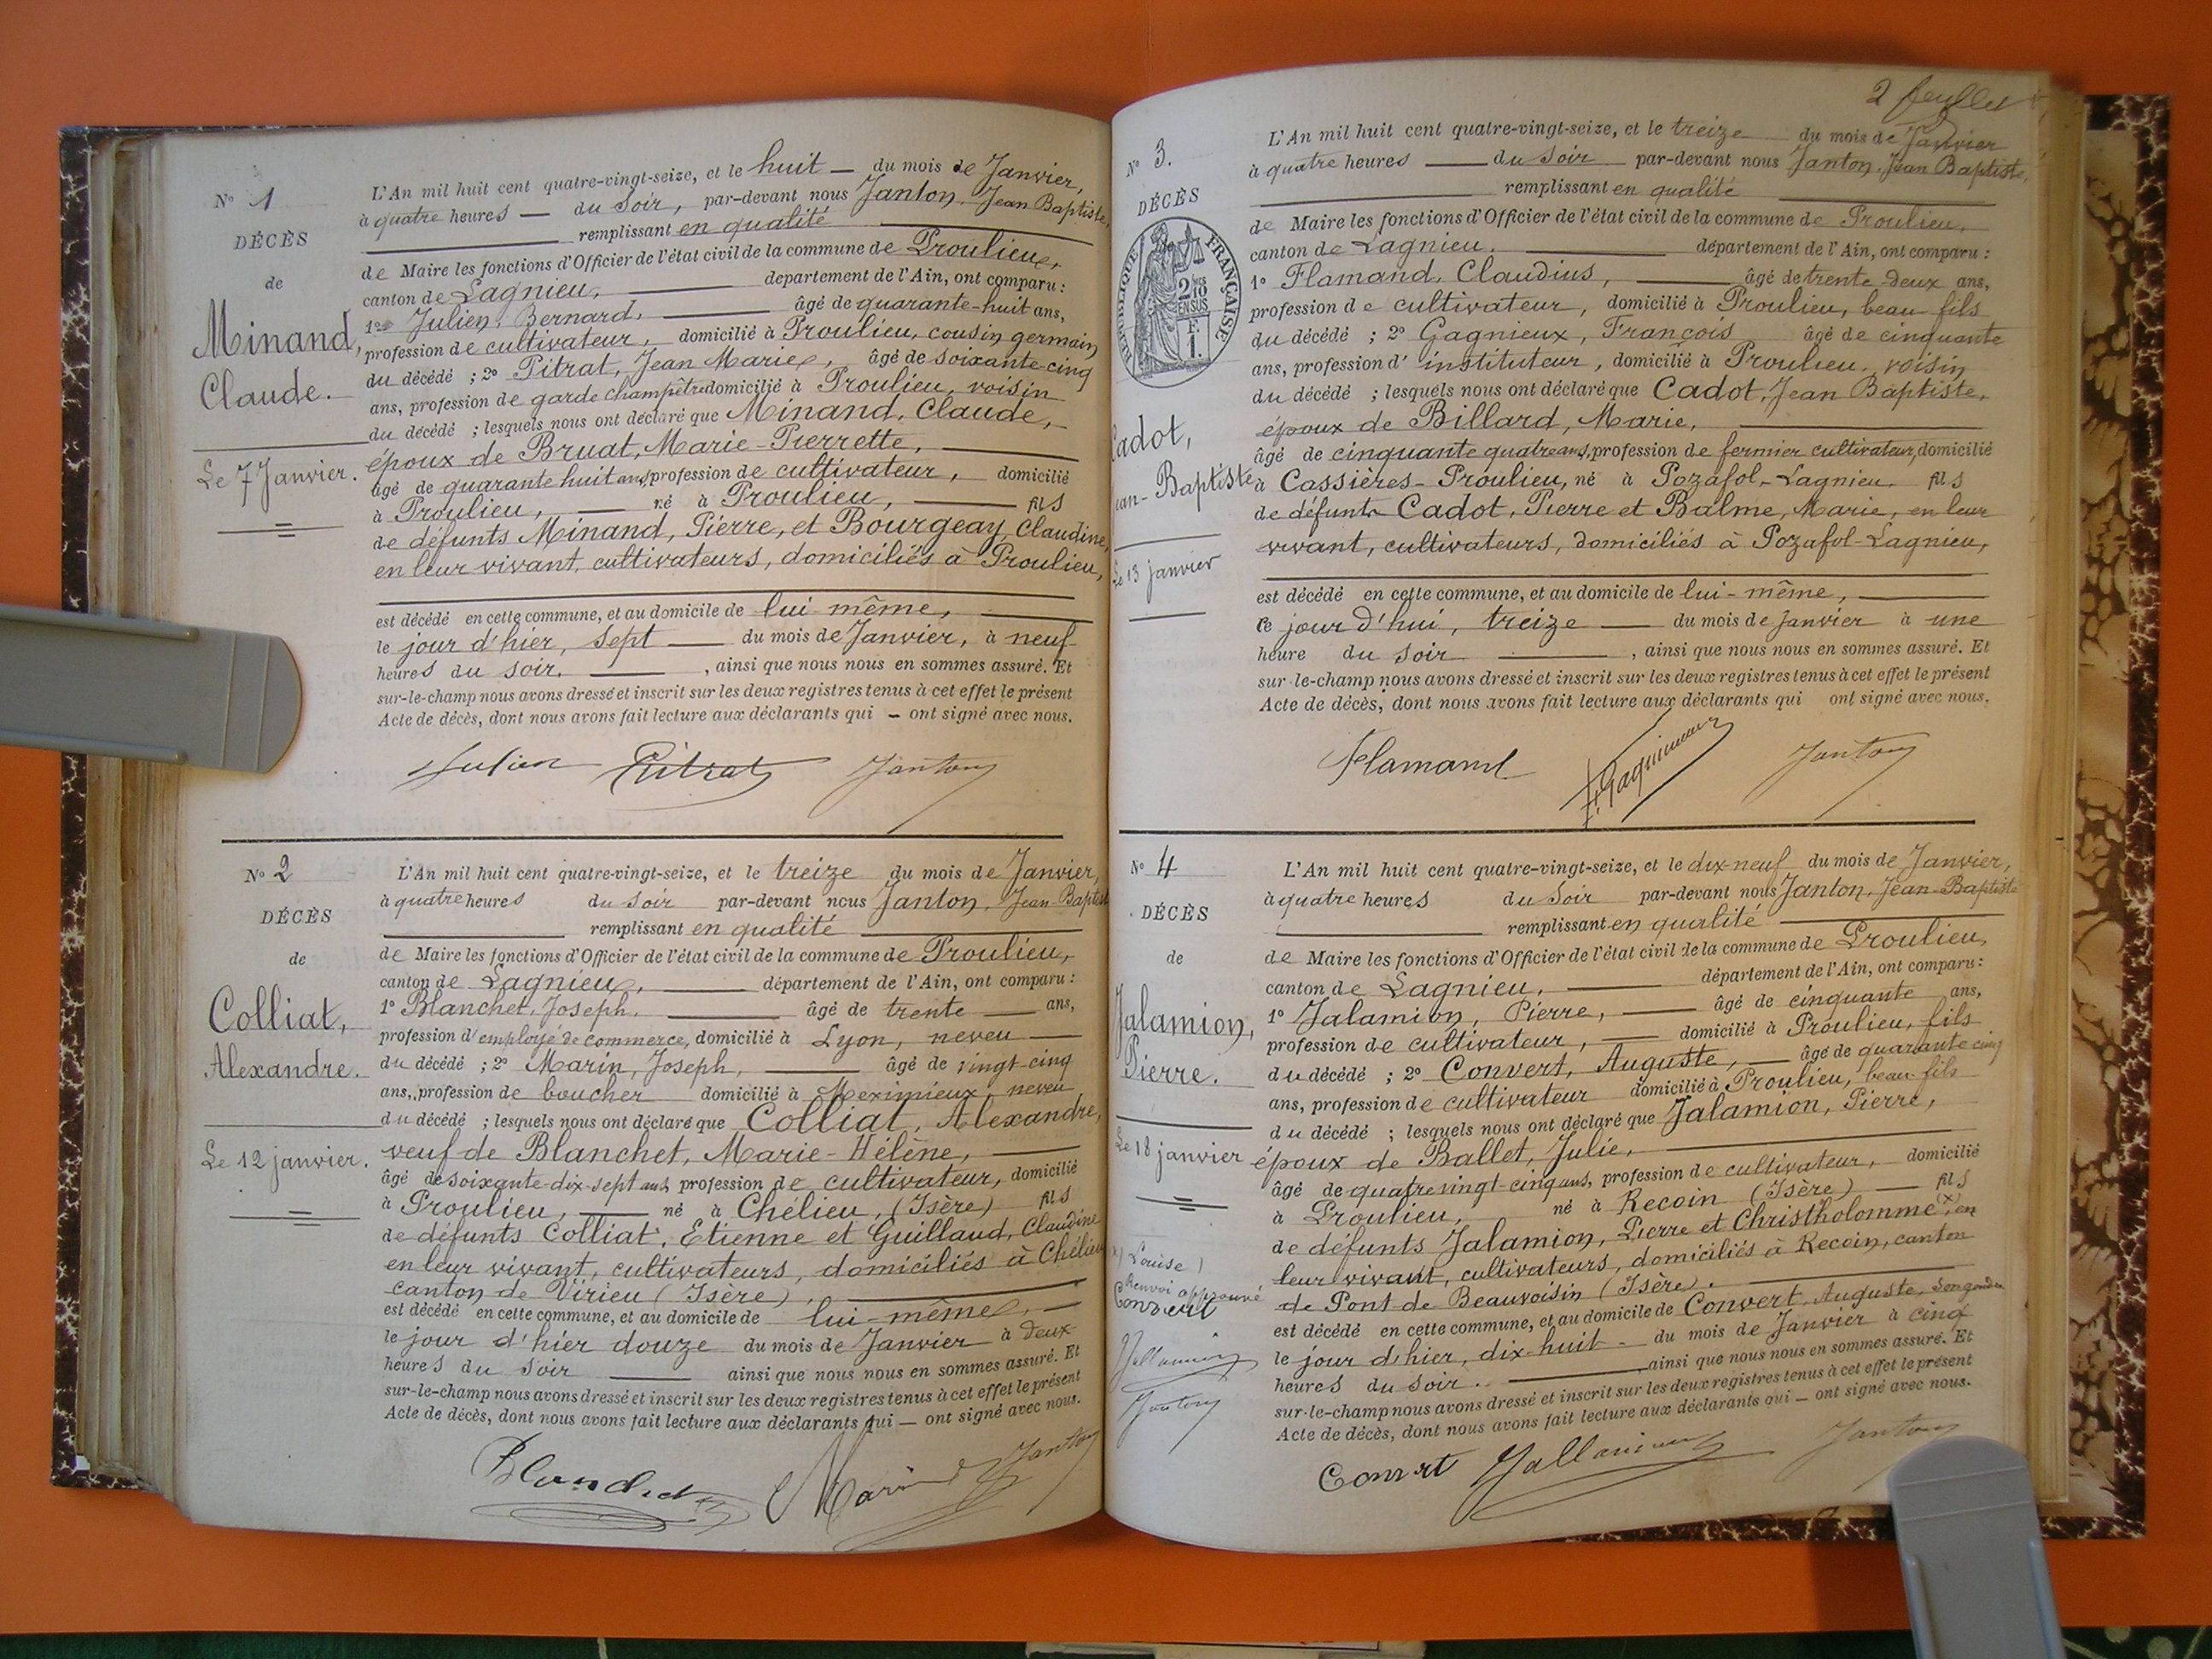 N° 1
DÉCÈS
de
Minand,
Claude.
Le 7 Janvier.
L'An mil huit cent quatre-vingt-seize, et le huit du mois de Janvier,
à quatre heures du Soir, par-devant nous Janton, Jean Baptiste,
remplissant en qualité
de Maire les fonctions d'Officier de l'état civil de la commune de Proulieu,
canton de Lagnieu, département de l'Ain, ont comparu :
1° Julien, Bernard, âgé de quarante-huit ans,
profession de cultivateur, domicilié à Proulieu, cousin germain
du décédé ; 2° Pitrat, Jean Marie, âgé de soixante-cinq
ans, profession de garde champêtre domicilié à Proulieu, voisin
du décédé ; lesquels nous ont déclaré que Minand, Claude,
époux de Bruat, Marie-Pierrette,
âgé de quarante huit ans, profession de cultivateur, domicilié
à Proulieu, né à Proulieu, fils
de défunts Minand, Pierre, et Bourgeay, Claudine,
en leur vivant, cultivateurs, domiciliés à Proulieu,
est décédé en cette commune, et au domicile de lui-même,
le jour d'hier, sept du mois de Janvier, à neuf
heures du soir, ainsi que nous nous en sommes assuré. Et
sur-le-champ nous avons dressé et inscrit sur les deux registres tenus à cet effet le présent
Acte de décès, dont nous avons fait lecture aux déclarants qui — ont signé avec nous.
Julien Pitrat Janton
N° 2
DÉCÈS
de
Colliat,
Alexandre.
Le 12 janvier.
L'An mil huit cent quatre-vingt-seize, et le treize du mois de Janvier,
à quatre heures du soir par-devant nous Janton, Jean-Baptist
remplissant en qualité
de Maire les fonctions d'Officier de l'état civil de la commune de Proulieu,
canton de Lagnieu, département de l'Ain, ont comparu :
1° Blanchet, Joseph, âgé de trente ans,
profession d'employé de commerce, domicilié à Lyon, neveu
du décédé ; 2° Marin, Joseph, âgé de vingt-cinq
ans, profession de boucher domicilié à Meximieux, neveu
du décédé ; lesquels nous ont déclaré que Colliat, Alexandre,
veuf de Blanchet, Marie-Hélène,
âgé de soixante-dix-sept ans, profession de cultivateur, domicilié
à Proulieu, né à Chélieu, (Isère) fils
de défunts Colliat, Etienne et Guillaud, Claudine
en leur vivant, cultivateurs, domiciliés à Chélieu
canton de Virieu (Isère),
est décédé en cette commune, et au domicile de lui-même,
le jour d'hier douze du mois de Janvier à deux
heures du soir ainsi que nous nous en sommes assuré. Et
sur-le-champ nous avons dressé et inscrit sur les deux registres tenus à cet effet le présent
Acte de décès, dont nous avons fait lecture aux déclarants qui — ont signé avec nous.
Blanchet Marin Janton
2 feuillet
N° 3.
DÉCÈS
RÉPUBLIQUE FRANÇAISE
2/10 EN SUS
F. 1.
Cadot,
Jean-Baptiste
Le 13 janvier
L'An mil huit cent quatre-vingt-seize, et le treize du mois de Janvier
à quatre heures du soir par-devant nous Janton, Jean Baptiste,
remplissant en qualité
de Maire les fonctions d'Officier de l'état civil de la commune de Proulieu,
canton de Lagnieu. département de l'Ain, ont comparu :
1° Flamand, Claudius, âgé de trente deux ans,
profession de cultivateur, domicilié à Proulieu, beau fils
du décédé ; 2° Gagnieux, François âgé de cinquante
ans, profession d'instituteur, domicilié à Proulieu, voisin
du décédé ; lesquels nous ont déclaré que Cadot, Jean Baptiste,
époux de Billard, Marie,
âgé de cinquante quatre ans, profession de fermier cultivateur, domicilié
à Cassières-Proulieu, né à Pozafol-Lagnieu. fils
de défunts Cadot, Pierre et Balme, Marie, en leur
vivant, cultivateurs, domiciliés à Pozafol-Lagnieu,
est décédé en cette commune, et au domicile de lui-même,
ce jour d'hui, treize du mois de Janvier à une
heure du soir, ainsi que nous nous en sommes assuré. Et
sur-le-champ nous avons dressé et inscrit sur les deux registres tenus à cet effet le présent
Acte de décès, dont nous avons fait lecture aux déclarants qui ont signé avec nous.
Flamand Janton
N° 4
DÉCÈS
de
Jalamion,
Pierre.
Le 18 janvier
(x) Louise )
Renvoi approuvé
Convert
Jallamion
Janton
L'An mil huit cent quatre-vingt-seize, et le dix-neuf du mois de Janvier,
à quatre heures du Soir par-devant nous Janton, Jean-Baptiste
remplissant en qualité
de Maire les fonctions d'Officier de l'état civil de la commune de Proulieu,
canton de Lagnieu. département de l'Ain, ont comparu :
1° Jalamion, Pierre, âgé de cinquante ans,
profession de cultivateur, domicilié à Proulieu, fils
du décédé ; 2° Convert, Auguste, âgé de quarante cinq
ans, profession de cultivateur domicilié à Proulieu, beau-fils
du décédé ; lesquels nous ont déclaré que Jalamion, Pierre,
époux de Ballet, Julie,
âgé de quatre vingt-cinq ans, profession de cultivateur, domicilié
à Proulieu, né à Recoin (Isère) fils
de défunts Jalamion, Pierre et Christholomme (x), en
leur vivant, cultivateurs, domiciliés à Recoin, canton
de Pont de Beauvoisin (Isère).
est décédé en cette commune, et au domicile de Convert, Auguste, son gendre
le jour d'hier, dix-huit du mois de Janvier à cinq
heures du soir. ainsi que nous nous en sommes assuré. Et
sur-le-champ nous avons dressé et inscrit sur les deux registres tenus à cet effet le présent
Acte de décès, dont nous avons fait lecture aux déclarants qui — ont signé avec nous.
Convert Jallamion Janton